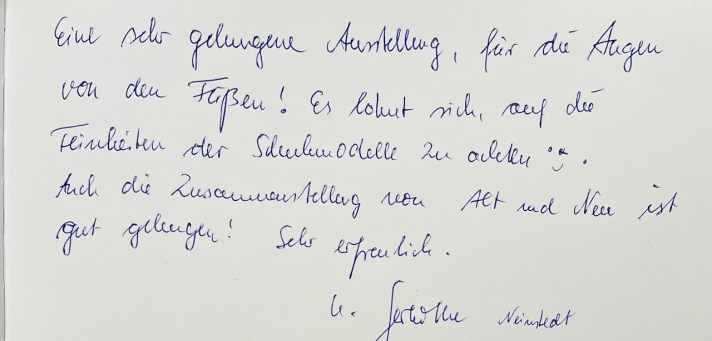 Eine sehr gelungene Ausstellung, für die Augen
von den Füßen! Es lohnt sich, auf die
Feinheiten der Schuhmodelle zu achten :-).
Auch die Zusammenstellung von Alt und Neu ist
gut gelungen! Sehr erfreulich.
Neinstedt